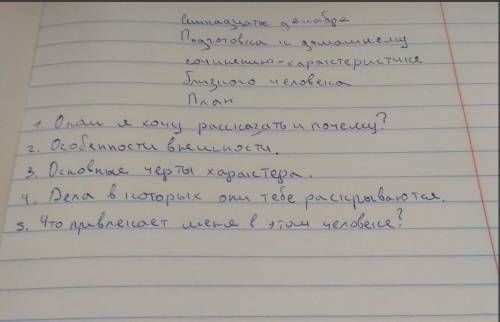 Семнадцатое декабря
Подготовка к домашнему
сочинению-характеристике
близкого человека
План
1. О ком я хочу рассказать и почему?
2. Особенности внешности.
3. Основные черты характера.
4. Дела в которых они тебе раскрываются.
5. Что привлекает меня в этом человеке?